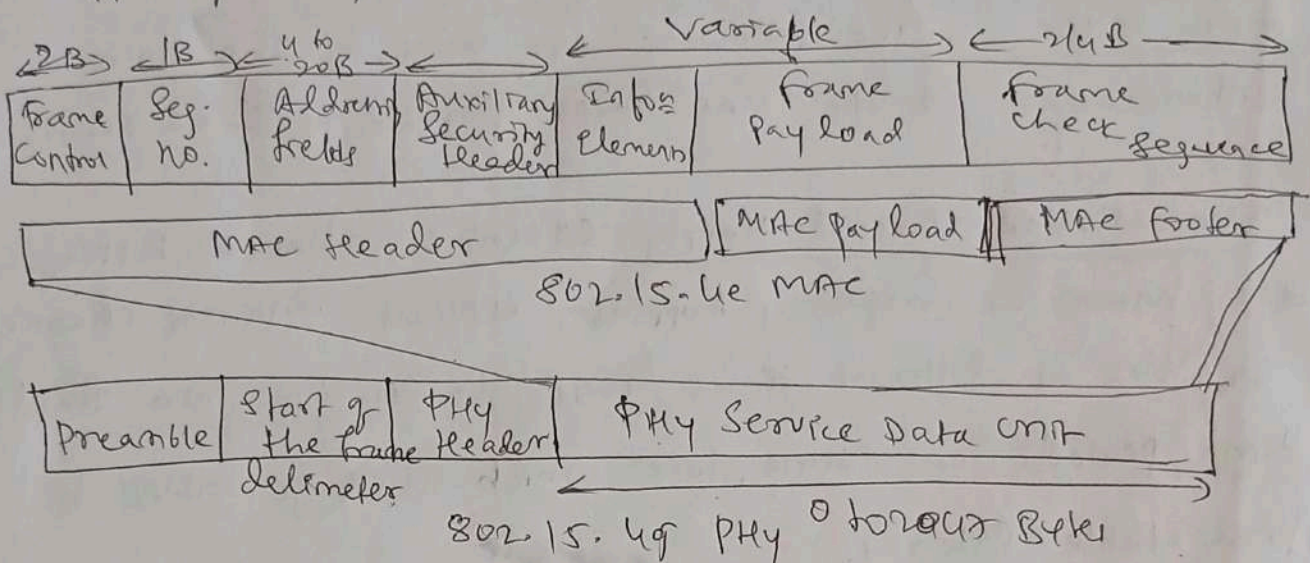 Variable
2B 1B 4 to 20B 2/4 B
Frame Control Seq. no. Address fields Auxiliary Security Header Info= Elements frame pay load frame check sequence
MAC Header MAC Pay load MAC footer
802.15.4e MAC
Preamble Start of the frame delimeter PHY Header PHY Service Data Unit
802.15.4g PHY 0 to 2047 Bytes